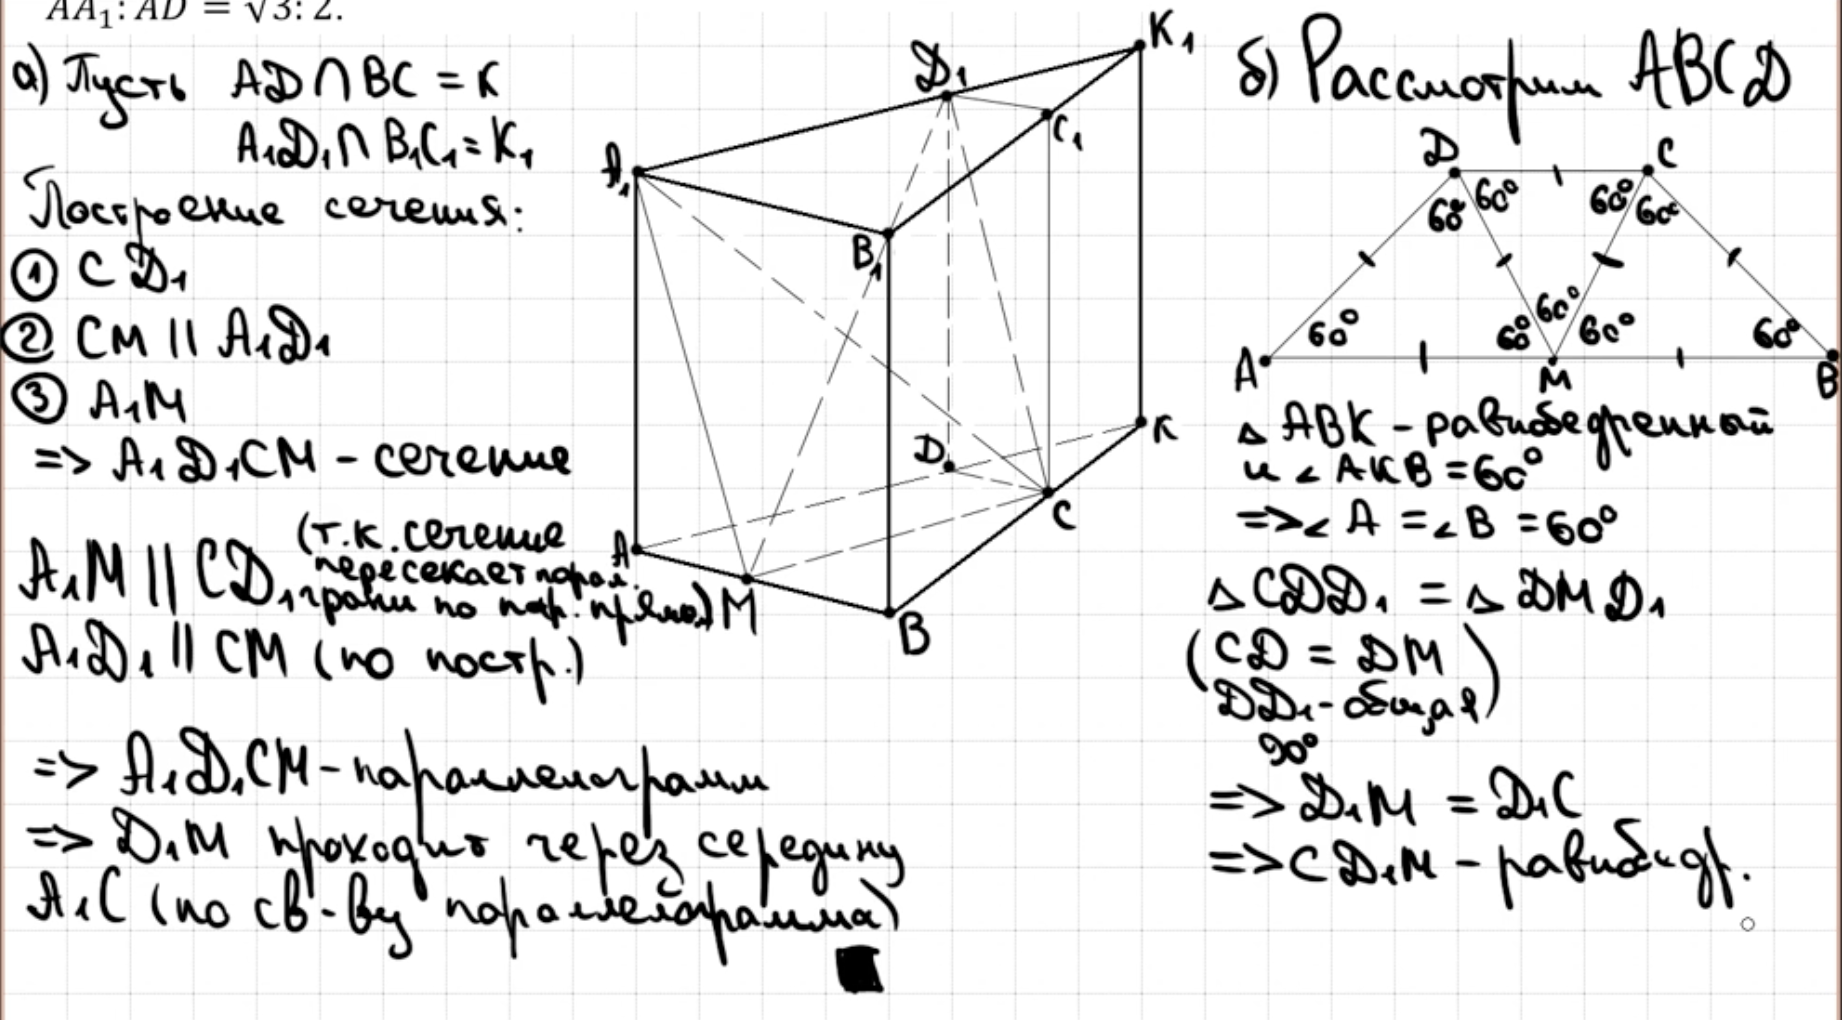 AA₁: AD = √3: 2.
а) Пусть AD ∩ BC = K
A₁D₁ ∩ B₁C₁ = K₁
Построение сечения:
① CD₁
② CM || A₁D₁
③ A₁M
=> A₁D₁CM - сечение
A₁M || CD₁ (т.к. сечение
пересекает парал.
грани по пар. прямым)
A₁D₁ || CM (по постр.)
=> A₁D₁CM - параллелограмм
=> D₁M проходит через середину
A₁C (по св-ву параллелограмма)
A₁
D₁
K₁
C₁
B₁
D
K
C
A
M
B
б) Рассмотрим ABCD
D
C
60°
60°
60°
60°
60°
60°
60°
60°
60°
A
M
B
△ ABK - равнобедренный
и ∠ AKB = 60°
=> ∠ A = ∠ B = 60°
△ CDD₁ = △ DMD₁
(CD = DM
DD₁ - общая)
90°
=> D₁M = D₁C
=> CD₁M - равнобедр.